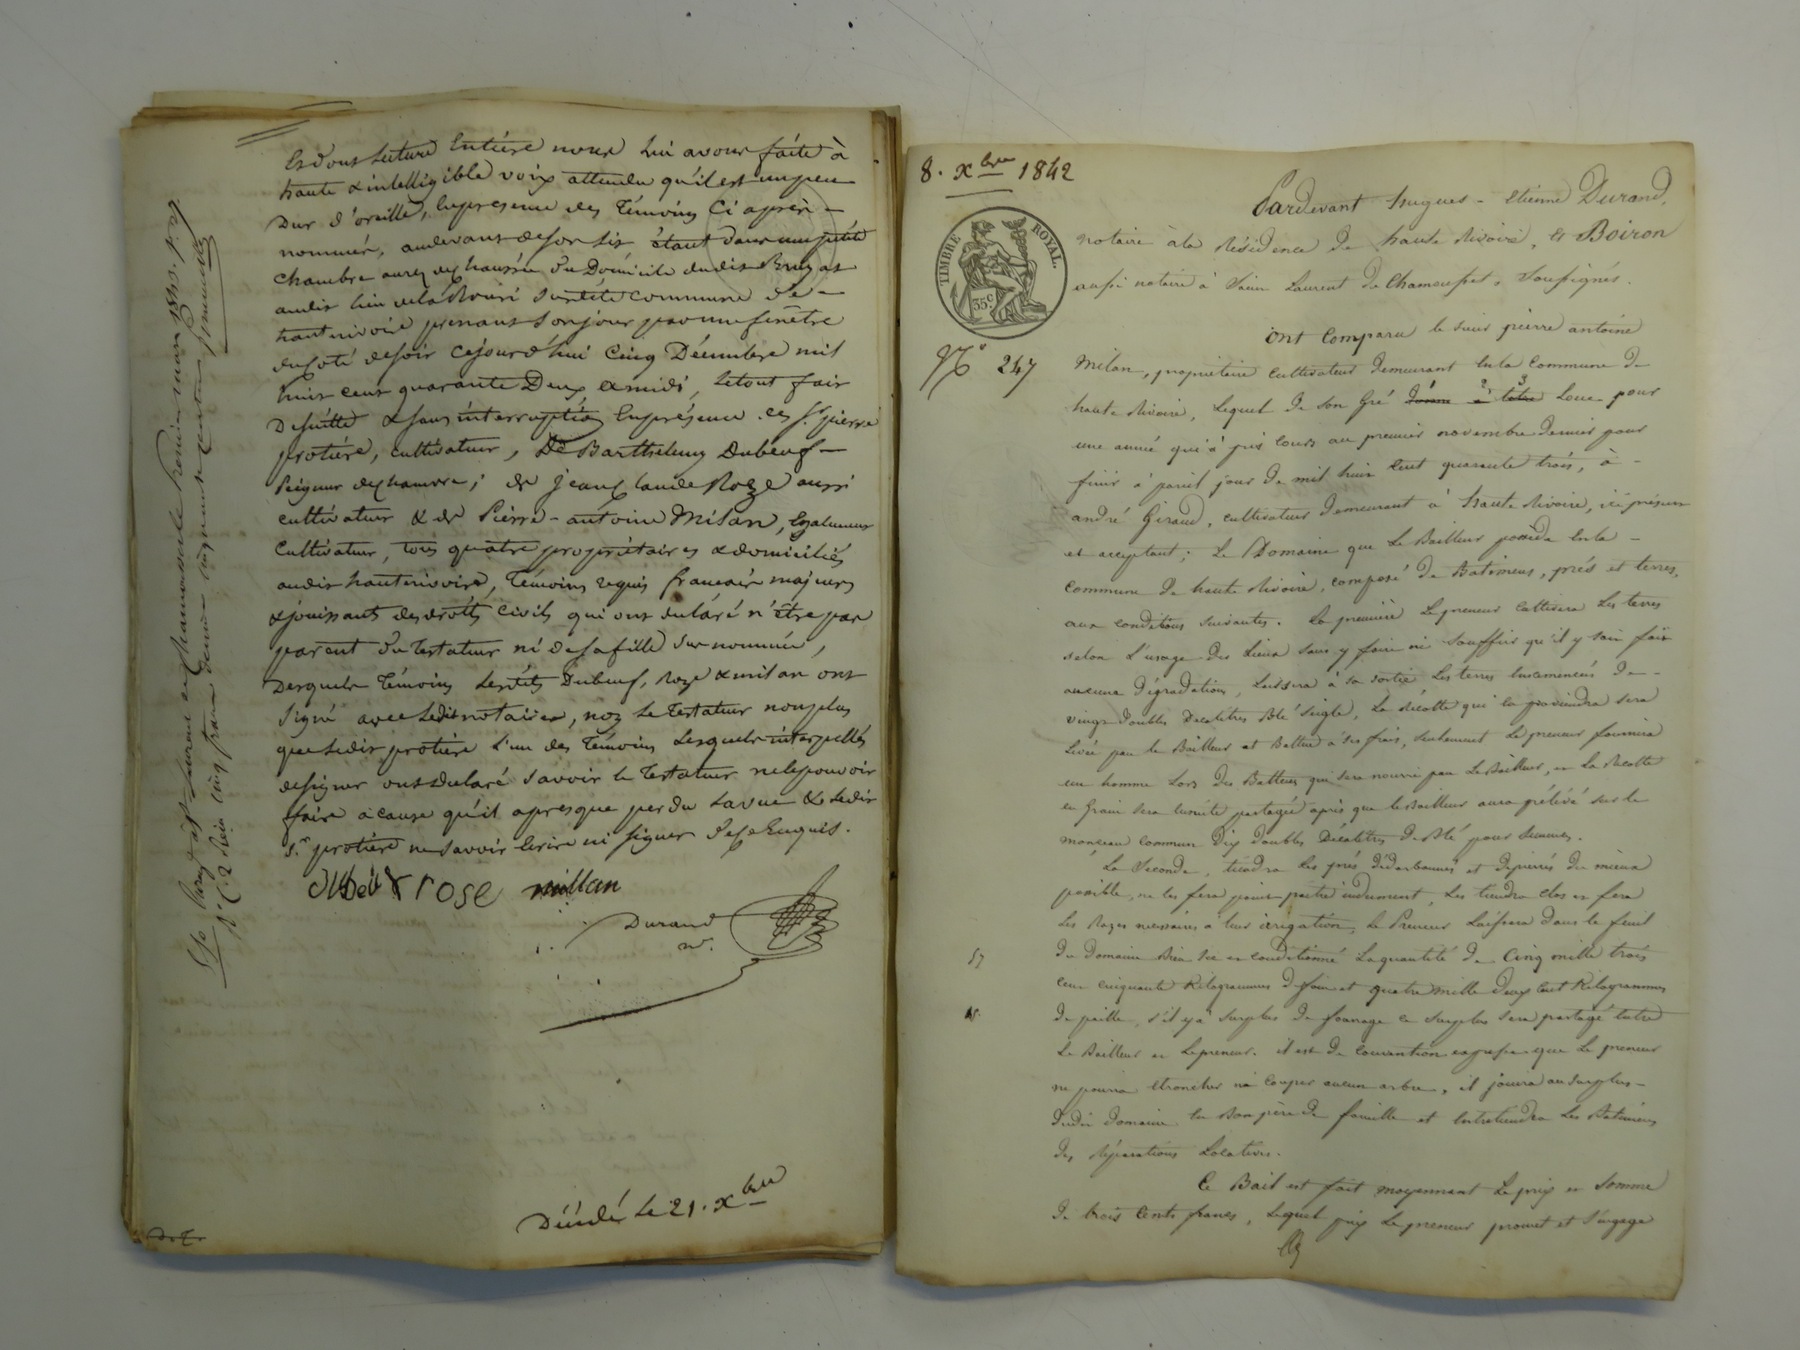 Et Dont Lecture Entière nous lui avons faite à
haute & intelligible voix attendu qu'il est un peu
Dur d'oreille, Enprésence des Témoins Ci après -
nommés, audevant de son lit étant dans une petite
Chambre aurez de chaussée du Domicile dudit
audit lieu de la Susdite commune de -
hauterivoire prenant son jour par une fenêtre
du Coté de soir Cejourd'hui Cinq Décembre mil
huit cent quarante Deux, a midi, Le tout fait
De suitte & sans interruption Enprésence des Sr. pierre
protière, cultivateur, De Barthelemy Dubeuf -
Peigneur de chanvre; de jean Claude Roze aussi
cultivateur & de Pierre - antoine Milan, Egalement
Cultivateur, tous quatre propriétaires & domiciliés
audit hauterivoire, Témoins requis francais majeurs
& jouissants des droits Civils qui ont déclaré n'être pas
parent du Testateur ni de sa fille sus nommée,
Desquels Témoins Lesdits Dubeuf, Roze & milan ont
signé avec Ledit notaire, non Le Testateur non plus
que Ledit protière L'un des Témoins Lesquels interpellés
de signer ont Déclaré savoir le Testateur ne le pouvoir
faire a cause qu'il a presque perdu La vue & Ledit
Sr. protière ne savoir Ecrire ni signer De ce Enquis.
rose millan
Durand
nre.
Décédé Le 21. Xbre
8. Xbre 1842
TIMBRE ROYAL.
35c
No 247
Pardevant hugues - Etienne Durand,
notaire à la Résidence de haute Rivoire, et Boiron
aussi notaire à Saint Laurent de Chamousset, Soussignés.
Ont Comparu le sieur pierre antoine
Milan, propriétaire Cultivateur Demeurant En la Commune de
haute Rivoire, Lequel de son Gré Loue pour
une année qui à pris Cours au premier novembre Dernier pour
finir à pareil jour de mil huit Cent quarante trois, à -
andré Giraud, cultivateur demeurant à haute Rivoire, ici présent
et acceptant; Le Domaine que Le Bailleur possède En la -
Commune de haute Rivoire, composé de Batimens, prés et terres,
aux conditions suivantes. La première Le preneur Cultivera Les terres
selon L'usage des Lieux sans y faire ni souffrir qu'il y soit fait
aucune Dégradations, Laissera à sa sortie Les terres Ensemencés de -
vingt doubles Décalitres Blé seigle, La Récolte qui En proviendra sera
Levée par le Bailleur et Battue à ses frais, seulement Le preneur fournira
un homme Lors des Batteurs qui sera nourri par Le Bailleur, et La Récolte
en Grain sera Ensuite partagée après que le Bailleur aura prélévé sur le
monceau commun Dix doubles Décalitres de Blé pour semences.
La Seconde, tiendra Les prés et Dépierrés du mieux
possible, ne Les fera point paitre indument, Les tiendra clos et fera
Les Razes nécessaires à leur irrigation, Le Preneur Laissera Dans le fenil
57 du Domaine Bien Sec et Conditionné La quantité de Cinq mille trois
cent Cinquante Kilogrammes de foin et quatre mille deux Cent Kilogrammes
de paille, s'il y a Surplus de fourrage ce Surplus sera partagé Entre
Le Bailleur et Le preneur. il est de Convention expresse que Le preneur
ne pourra Etroncher ni Couper aucun arbre, il jouira au surplus -
dudit Domaine En Bon père de famille et Entretiendra Les Batimens
des Réparations Locatives.
Ce Bail est fait moyennant Le prix et Somme
de trois Cents francs, Lequel prix Le preneur promet et S'engage